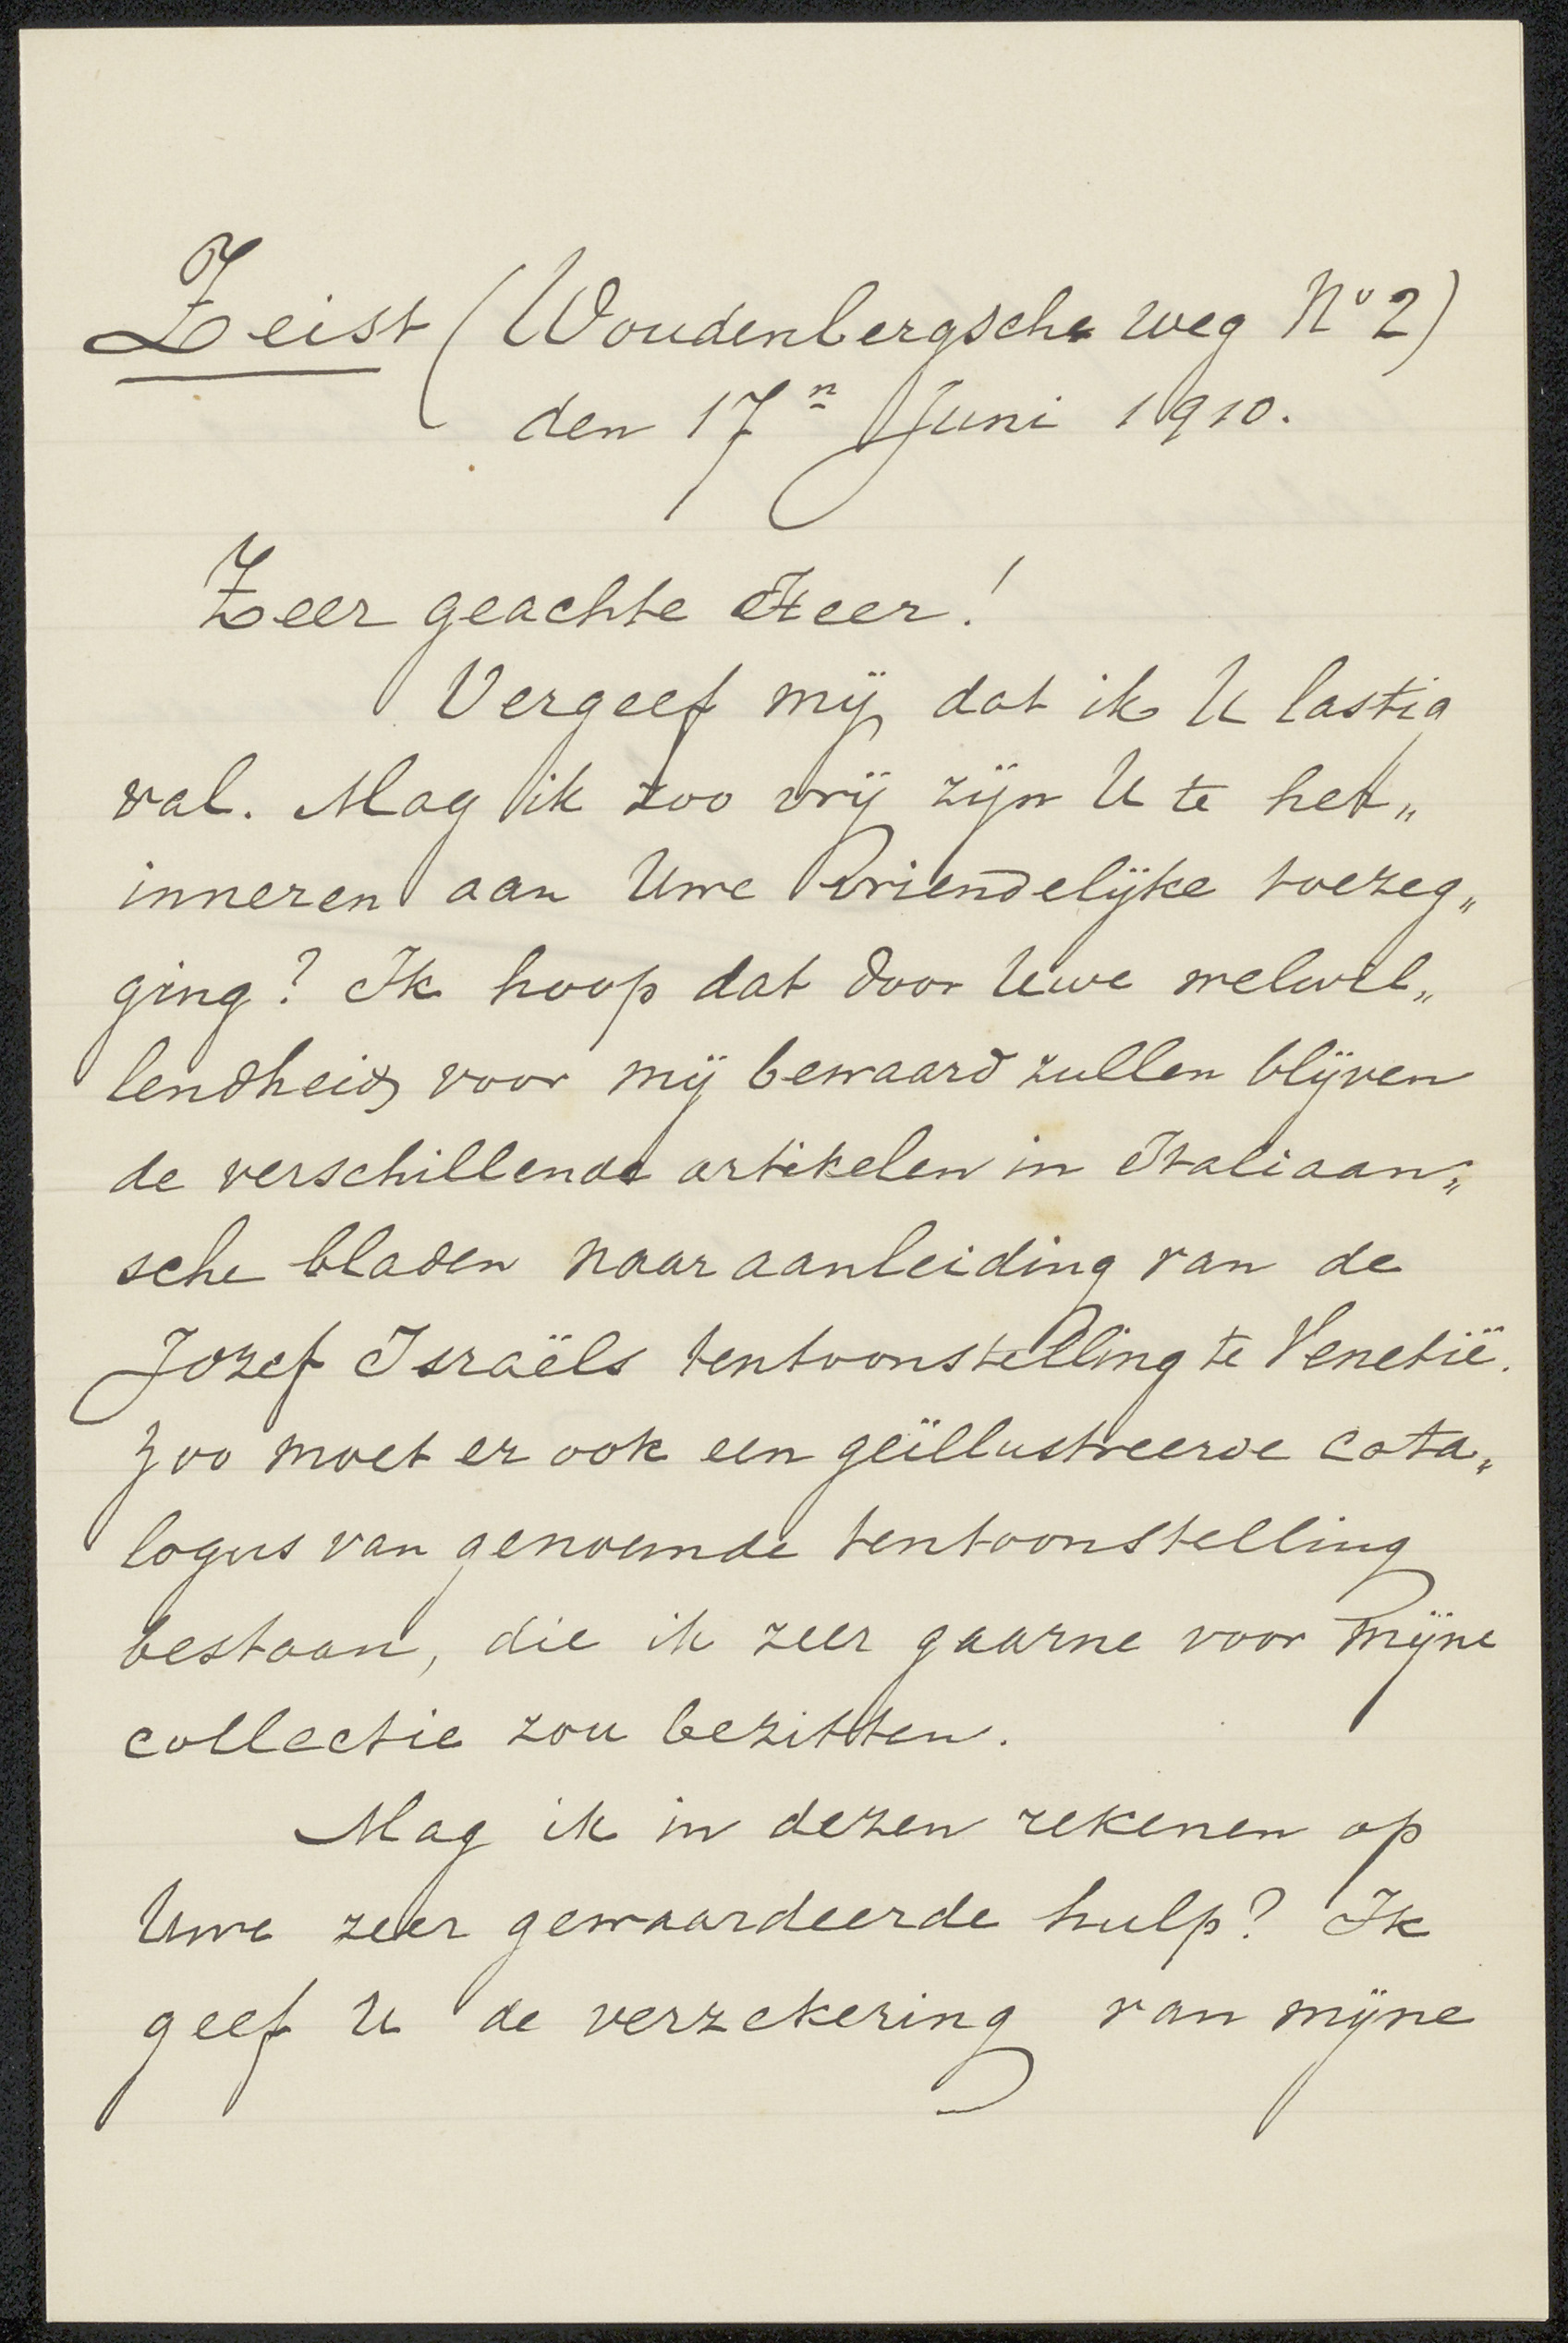 Zeist (Woudenbergsche weg No 2)
den 17n Juni 1910.
Zeer geachte Heer!
Vergeef mij dat ik U lastig
val. Mag ik zoo vrij zijn U te her„
inneren aan Uwe vriendelijke toezeg„
ging? Ik hoop dat door Uwe welwil„
lendheid voor mij bewaard zullen blijven
de verschillende artikelen in Italiaan„
sche bladen naar aanleiding van de
Jozef Israëls tentoonstelling te Venetië.
Zoo moet er ook een geïllustreerde cata„
logus van genoemde tentoonstelling
bestaan, die ik zeer gaarne voor mijne
collectie zou bezitten.
Mag ik in dezen rekenen op
Uwe zeer gewaardeerde hulp? Ik
geef U de verzekering van mijne